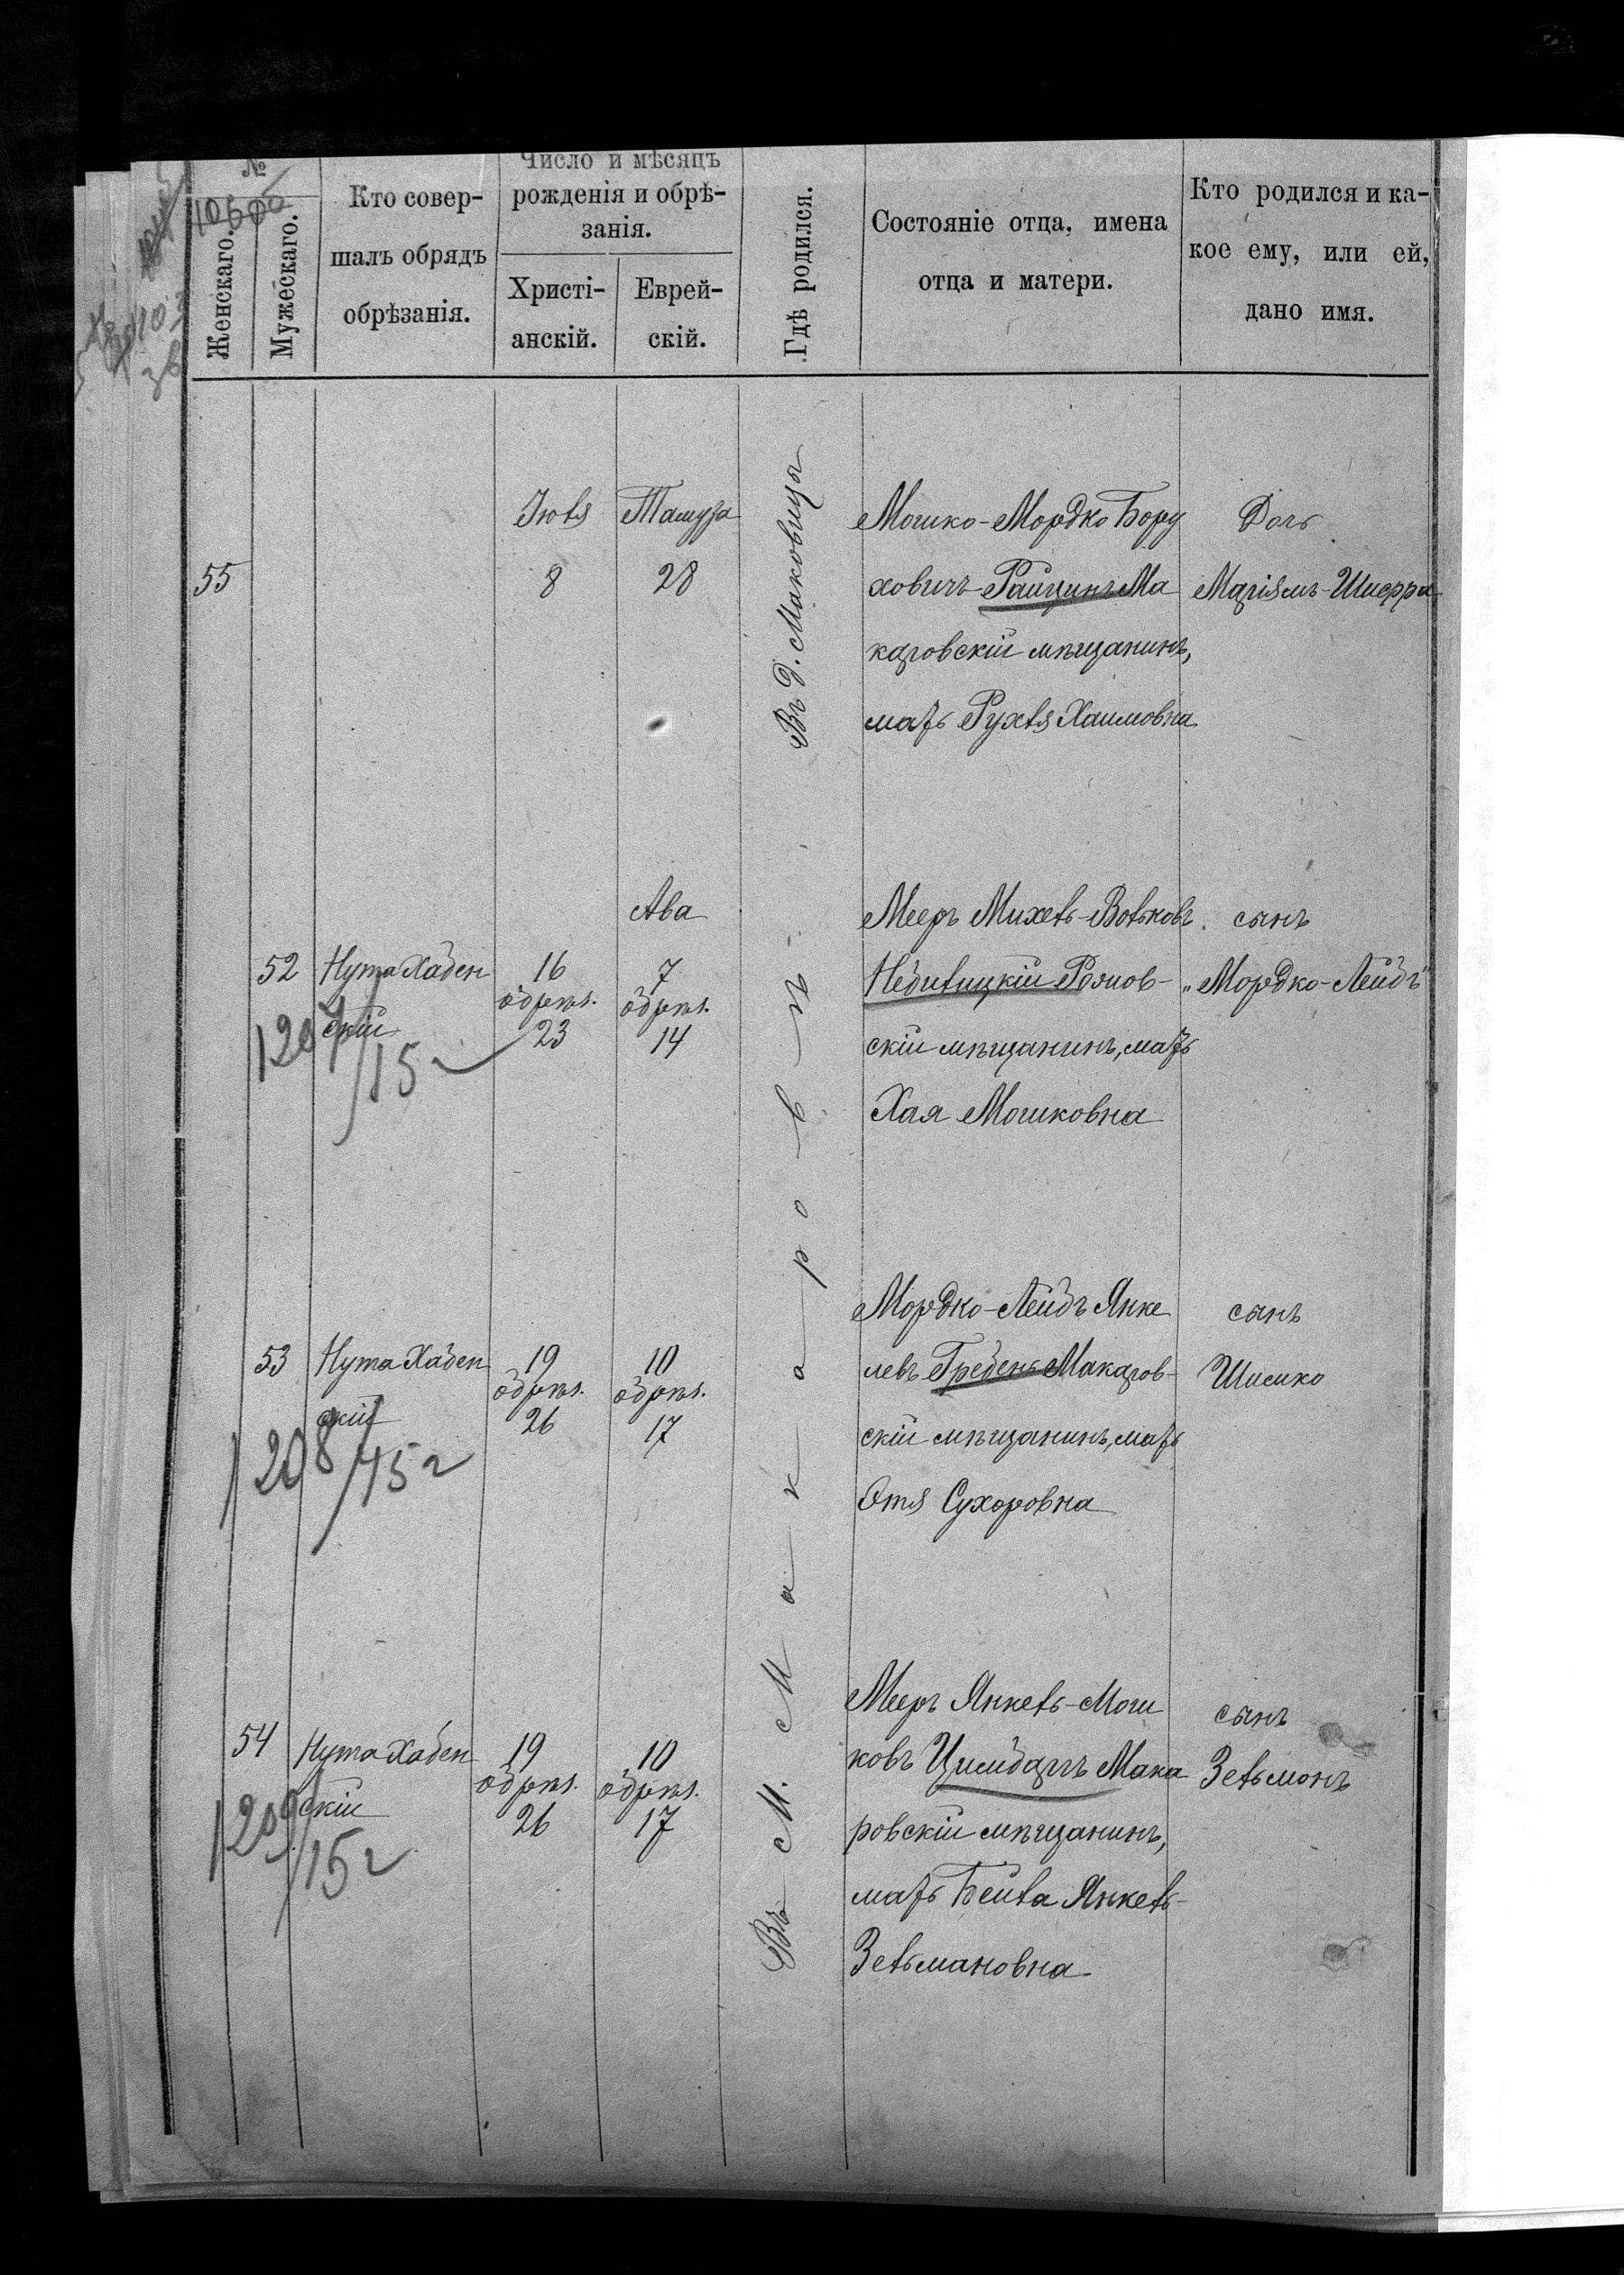 №
Женскаго.
Мужескаго.
Кто совер-
шалъ обрядъ
обрѣзанія.
Число и мѣсяцъ
рожденія и обрѣ-
занія.
Христі-
анскій.
Еврей-
скій.
Гдѣ родился.
Состояніе отца, имена
отца и матери.
Кто родился и ка-
кое ему, или ей,
дано имя.
55
Іюля
8
Тамуза
28
Въ д. Маковища
Мошко-Мордко Бору
ховичъ Райцинъ Ма
каровскій мѣщанинъ,
мать Рухля Хаимовна
Дочь
Маріямъ-Шперра
52
Нута Хабен
скій
1207/15 г
16
обрѣз.
23
Ава
7
обрѣз.
14
Въ м. Макаровѣ
Мееръ Михель-Вольковъ
Небилицкій Рожов-
скій мѣщанинъ, мать
Хая Мошковна
сынъ
„Мордко-Лейбъ"
53
Нута Хабен
скій
1208/15 г
19
обрѣз.
26
10
обрѣз.
17
Мордко-Лейбъ Янке
левъ Гребень Макаров-
скій мѣщанинъ, мать
Этя Сухоровна
сынъ
Шимко
54
Нута Хабен
скій
1209/15 г
19
обрѣз.
26
10
обрѣз.
17
Мееръ Янкель-Мош
ковъ Цимбаръ Мака
ровскій мѣщанинъ,
мать Бейла Янкель-
Зельмановна
сынъ
Зельмонъ